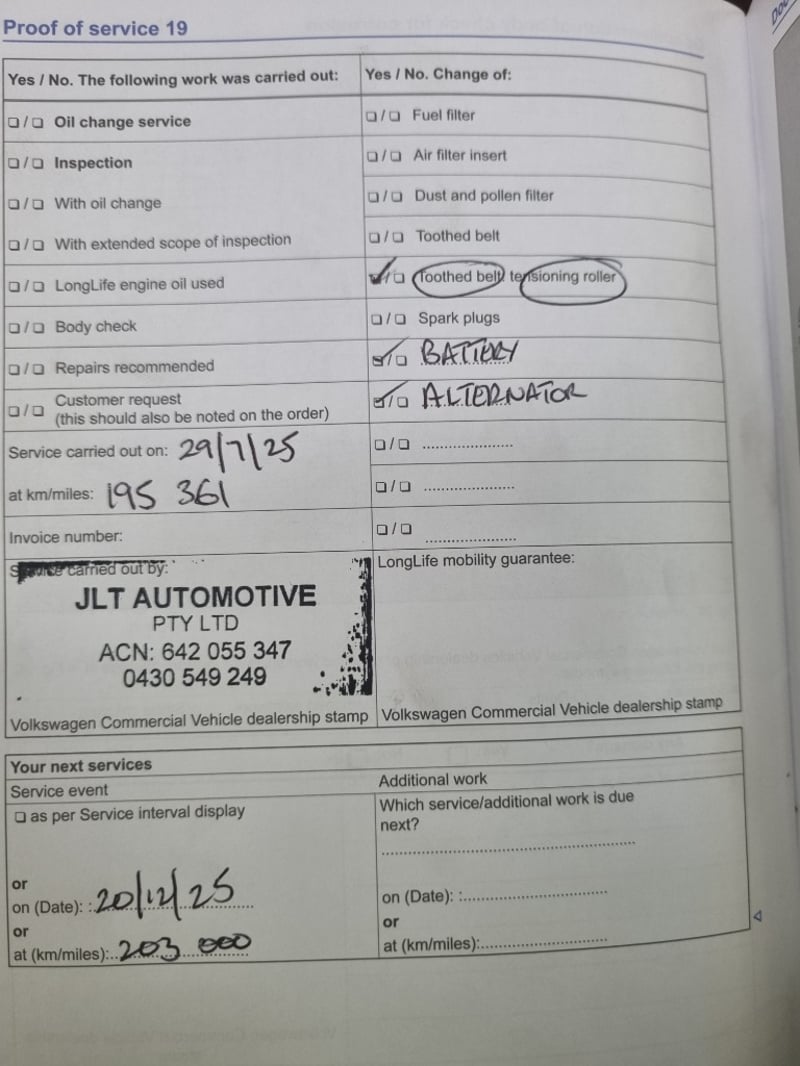 Proof of service 19
Yes / No. The following work was carried out:
❏ / ❏ Oil change service
❏ / ❏ Inspection
❏ / ❏ With oil change
❏ / ❏ With extended scope of inspection
❏ / ❏ LongLife engine oil used
❏ / ❏ Body check
❏ / ❏ Repairs recommended
❏ / ❏ Customer request
(this should also be noted on the order)
Service carried out on: 29/7/25
at km/miles: 195 361
Invoice number:
Yes / No. Change of:
❏ / ❏ Fuel filter
❏ / ❏ Air filter insert
❏ / ❏ Dust and pollen filter
❏ / ❏ Toothed belt
☑ / ❏ Toothed belt tensioning roller
❏ / ❏ Spark plugs
☑ / ❏ BATTERY
☑ / ❏ ALTERNATOR
❏ / ❏ ....................
❏ / ❏ ....................
❏ / ❏ ....................
carried out by:
JLT AUTOMOTIVE
PTY LTD
ACN: 642 055 347
0430 549 249
Volkswagen Commercial Vehicle dealership stamp
LongLife mobility guarantee:
Volkswagen Commercial Vehicle dealership stamp
Your next services
Service event
❏ as per Service interval display
or
on (Date): : 20/12/25
or
at (km/miles):.. 203 000
Additional work
Which service/additional work is due
next?
..........................................
on (Date): :..............................
or
at (km/miles):..........................